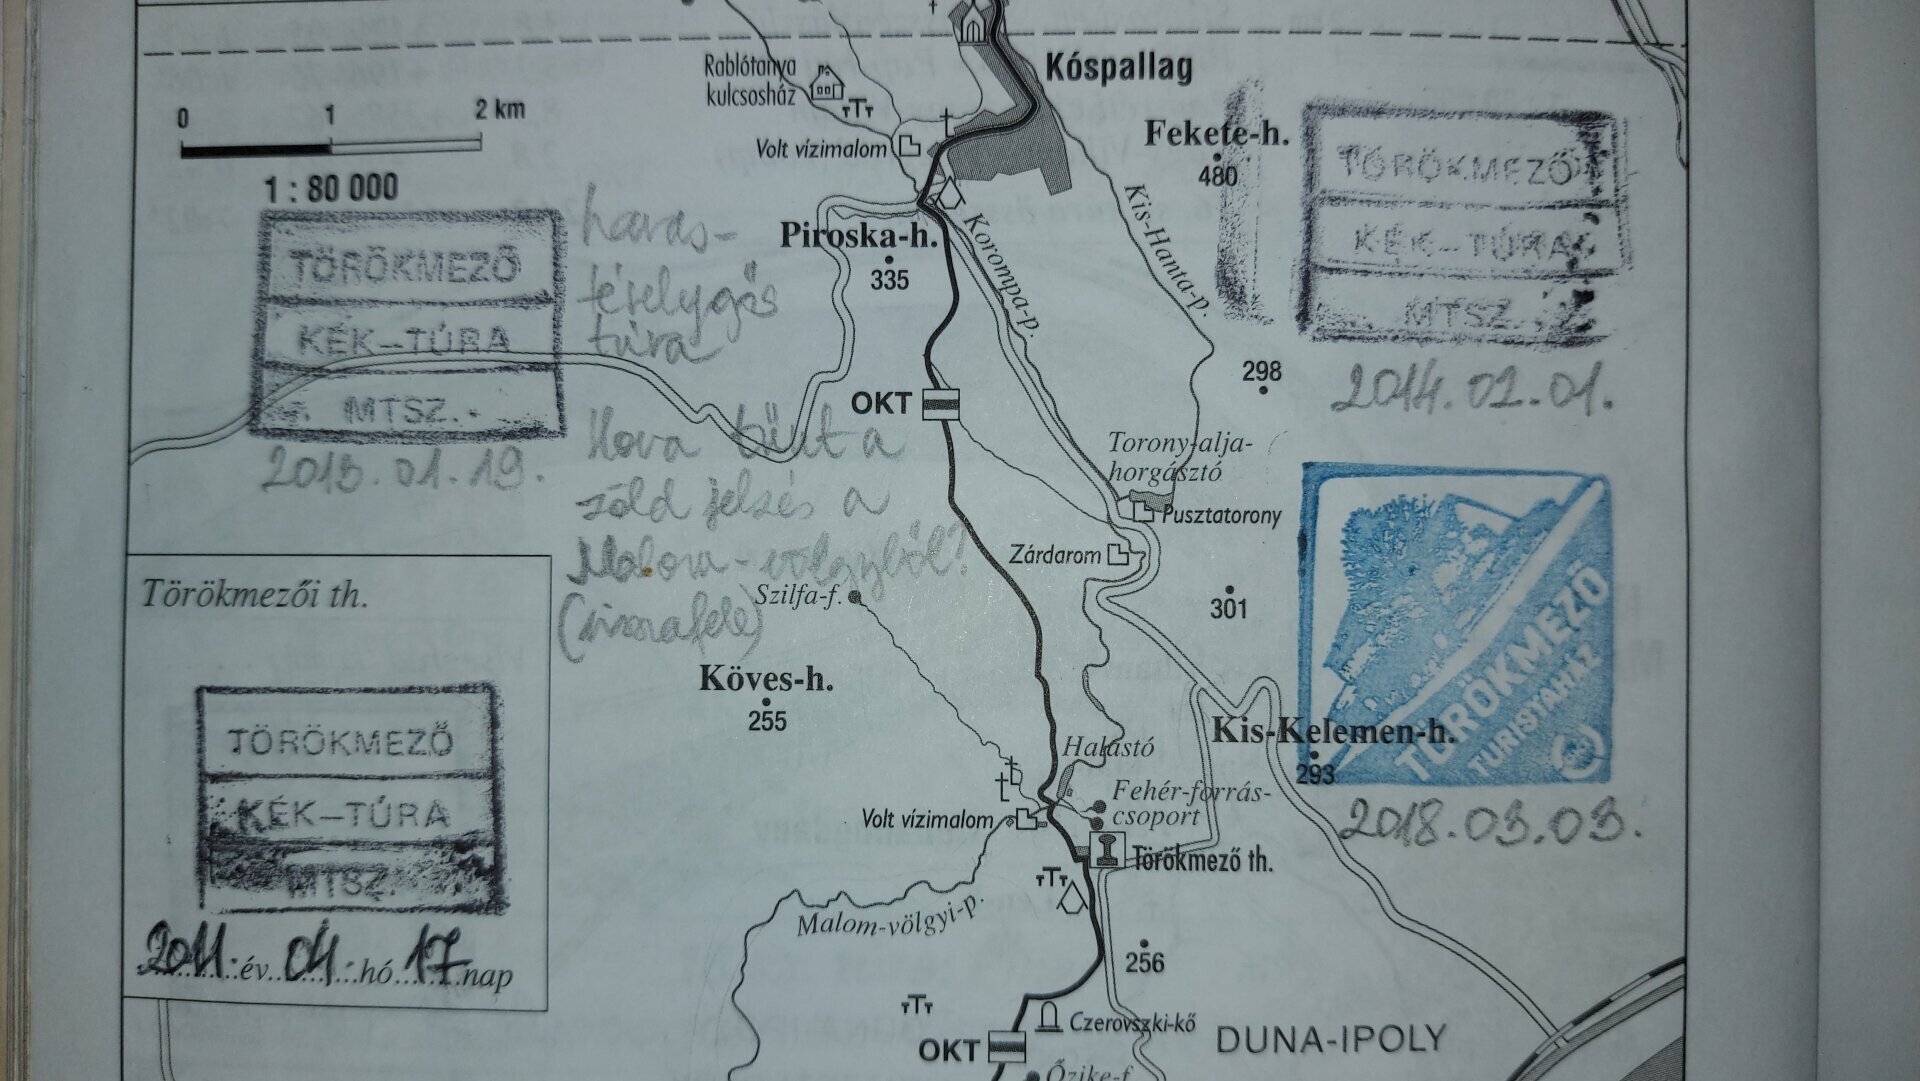 Kóspallag
Rablótanya
kulcsosház
0 1 2 km
1 : 80 000
Volt vízimalom
Fekete-h.
480
Kis-Hanta-p.
Korompa-p.
Piroska-h.
335
TÖRÖKMEZŐ
KÉK-TÚRA
MTSZ.
2013.01.19.
havas-
tévelygős
túra
Hova tűnt a
zöld jelzés a
Malom-völgyből?
TÖRÖKMEZŐ
KÉK-TÚRA
MTSZ.
2014.02.01.
298
OKT
Torony-alja-
horgásztó
Pusztatorony
Zárdarom
301
Szilfa-f.
Köves-h.
255
TÖRÖKMEZŐ
TURISTAHÁZ
2018.03.03.
Kis-Kelemen-h.
293
Törökmezői th.
TÖRÖKMEZŐ
KÉK-TÚRA
MTSZ.
2011. év 04. hó 17 nap
Halastó
Fehér-forrás-
csoport
Volt vízimalom
Törökmező th.
Malom-völgyi-p.
256
Czerovszki-kő
OKT
DUNA-IPOLY
Őzike-f.